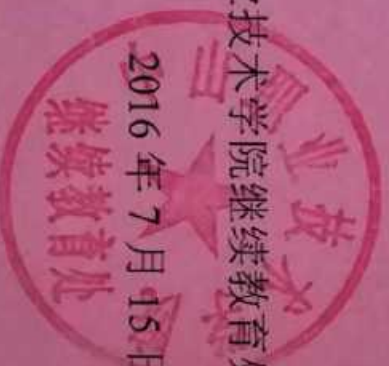 业技术学院继续教育
2016 年 7 月 15 日
业技术
继续教育处